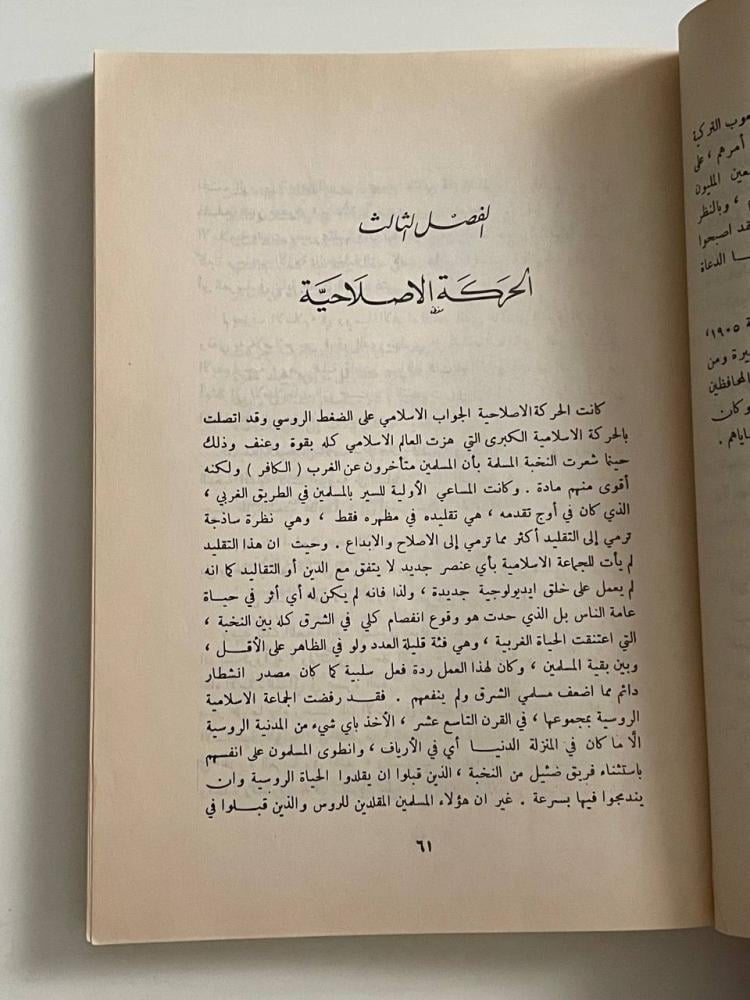 الفصل الثالث
الحركة الاصلاحية
كانت الحركة الاصلاحية الجواب الاسلامي على الضغط الروسي وقد اتصلت
بالحركة الاسلامية الكبرى التي هزت العالم الاسلامي كله بقوة وعنف وذلك
حينما شعرت النخبة المسلمة بأن المسلمين متأخرون عن الغرب ( الكافر ) ولكنه
أقوى منهم مادة . وكانت المساعي الأولية للسير بالمسلمين في الطريق الغربي ،
الذي كان في أوج تقدمه ، هي تقليده في مظهره فقط ، وهي نظرة ساذجة
ترمي إلى التقليد أكثر مما ترمي إلى الاصلاح والابداع . وحيث ان هذا التقليد
لم يأت للجماعة الاسلامية بأي عنصر جديد لا يتفق مع الدين أو التقاليد كما انه
لم يعمل على خلق ايديولوجية جديدة ، ولذا فانه لم يكن له أي أثر في حياة
عامة الناس بل الذي حدث هو وقوع انفصام كلي في الشرق كله بين النخبة ،
التي اعتنقت الحياة الغربية ، وهي فئة قليلة العدد ولو في الظاهر على الأقل ،
وبين بقية المسلمين ، وكان لهذا العمل ردة فعل سلبية كما كان مصدر انشطار
دائم مما اضعف مسلمي الشرق ولم ينفعهم . فقد رفضت الجماعة الاسلامية
الروسية بمجموعها ، في القرن التاسع عشر ، الأخذ باي شيء من المدنية الروسية
الّا ما كان في المنزلة الدنيا أي في الأرياف ، وانطوى المسلمون على انفسهم
باستثناء فريق ضئيل من النخبة ، الذين قبلوا ان يقلدوا الحياة الروسية وان
يندمجوا فيها بسرعة . غير ان هؤلاء المسلمين المقلدين للروس والذين قبلوا في
٦١
التركية
أمرهم ، على
المليون
، وبالنظر
اصبحوا
الدعاة
١٩٠٥،
ومن
المحافظين
وكان